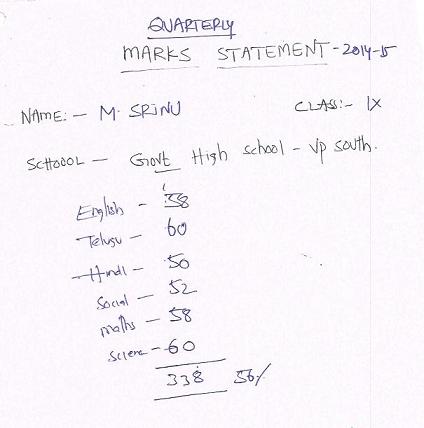 QUARTERLY
MARKS STATEMENT - 2014-15
NAME:- M. SRINU CLASS:- IX
SCHOOOL - Govt High school - VP south.
English - 58
Telugu - 60
Hindi - 50
Social - 52
maths - 58
Science - 60
338 56%